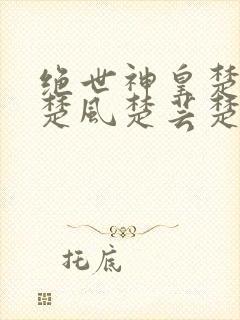 绝世神皇楚
楚风楚芸楚
托底